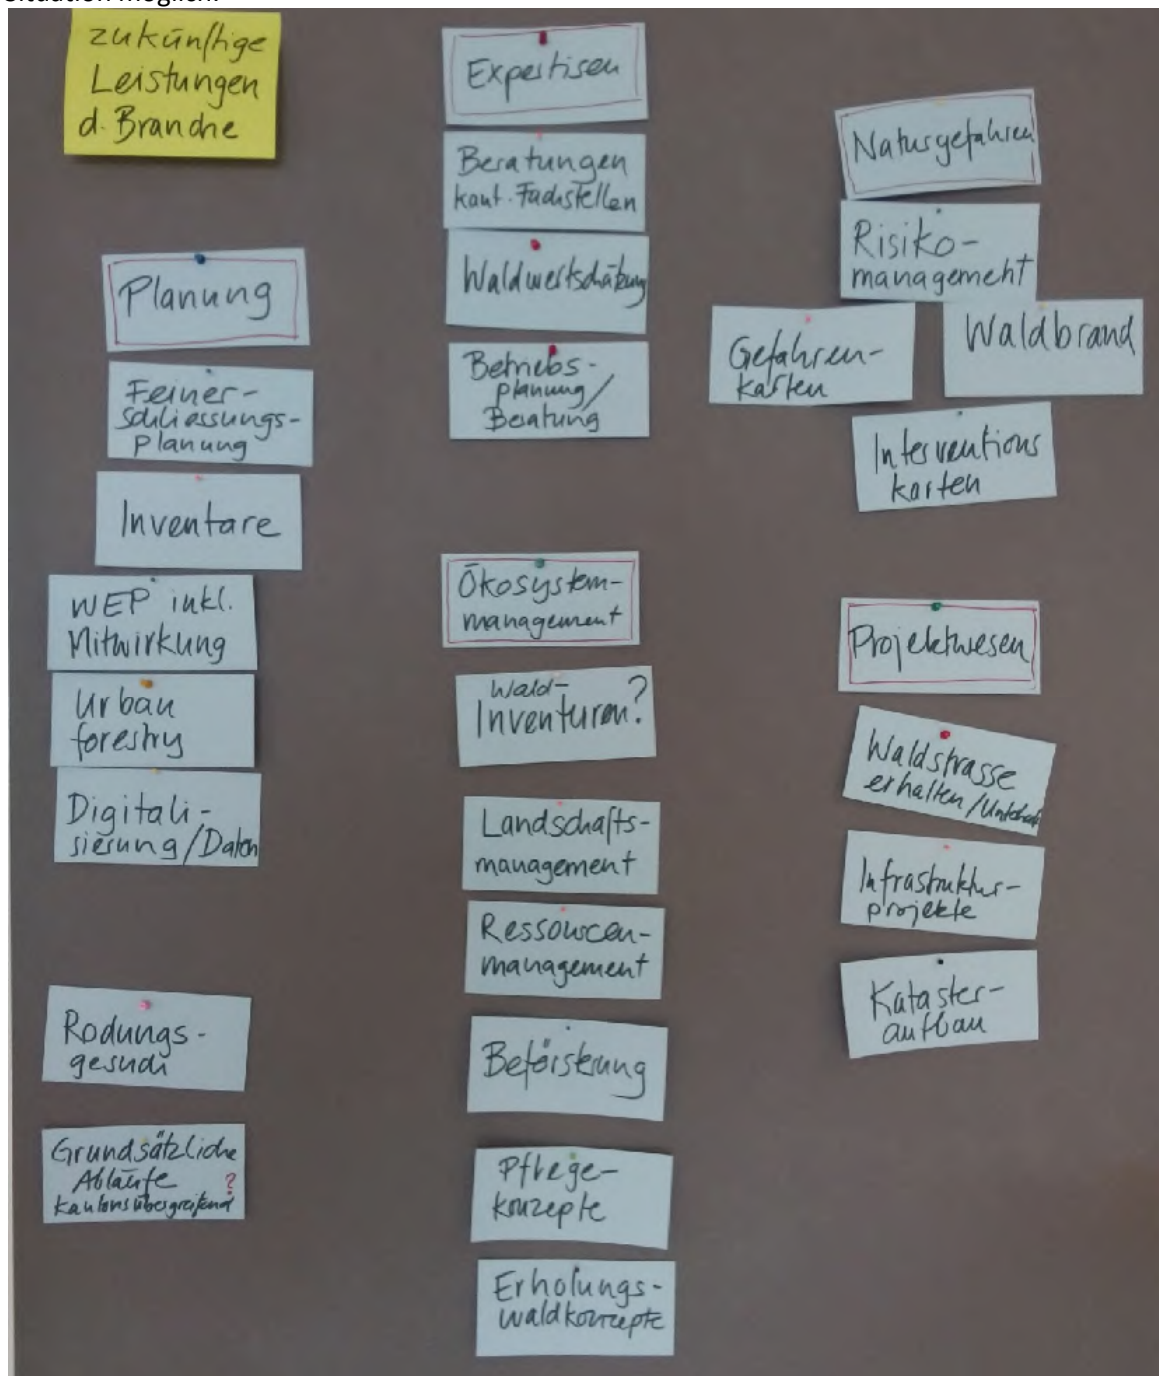 Situation möglich.
zukünftige
Leistungen
d. Branche
Planung
Feiner-
schliessungs-
planung
Inventare
WEP inkl.
Mitwirkung
Urban
forestry
Digitali-
sierung/Daten
Rodungs-
gesuch
Grundsätzliche
Abläufe ?
kantonsübergreifend
Expertisen
Beratungen
kant. Fachstellen
Waldwertschätzung
Betriebs-
planung/
Beratung
Ökosystem-
management
Wald-
Inventuren?
Landschafts-
management
Ressourcen-
management
Beförsterung
Pflege-
konzepte
Erholungs-
waldkonzepte
Naturgefahren
Risiko-
management
Gefahren-
karten
Waldbrand
Interventions
karten
Projektwesen
Waldstrasse
erhalten/
Infrastruktur-
projekte
Kataster-
aufbau